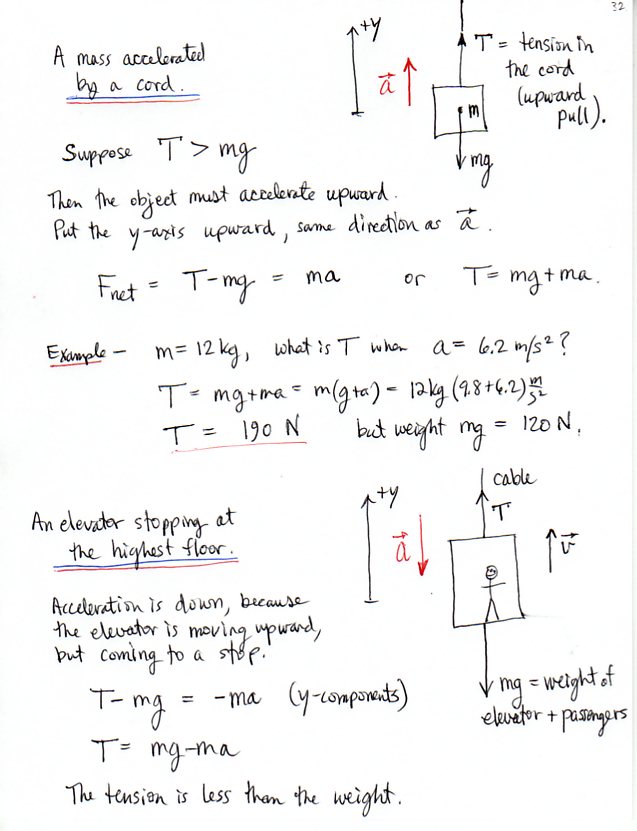 32
A mass accelerated
by a cord.
+y
a⃗
T = tension in
the cord
(upward
pull).
m
mg
Suppose T > mg
Then the object must accelerate upward.
Put the y-axis upward, same direction as a⃗.
Fnet = T-mg = ma or T = mg+ma.
Example – m = 12 kg, what is T when a = 6.2 m/s²?
T = mg+ma = m(g+a) = 12kg (9.8+6.2) m/s²
T = 190 N but weight mg = 120 N.
An elevator stopping at
the highest floor.
+y
a⃗
cable
T
v⃗
Acceleration is down, because
the elevator is moving upward,
but coming to a stop.
mg = weight of
elevator + passengers
T-mg = -ma (y-components)
T = mg-ma
The tension is less than the weight.